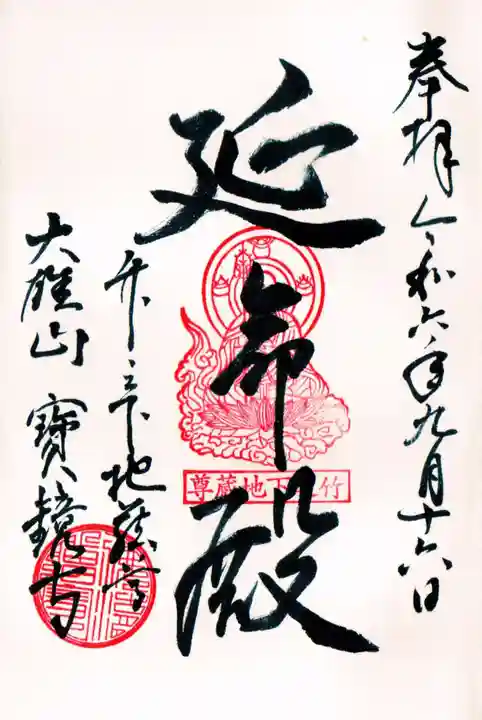 奉拝 令和六年九月十六日
延命殿
竹之下地蔵尊
大雄山 寶鏡寺
尊蔵地下之竹